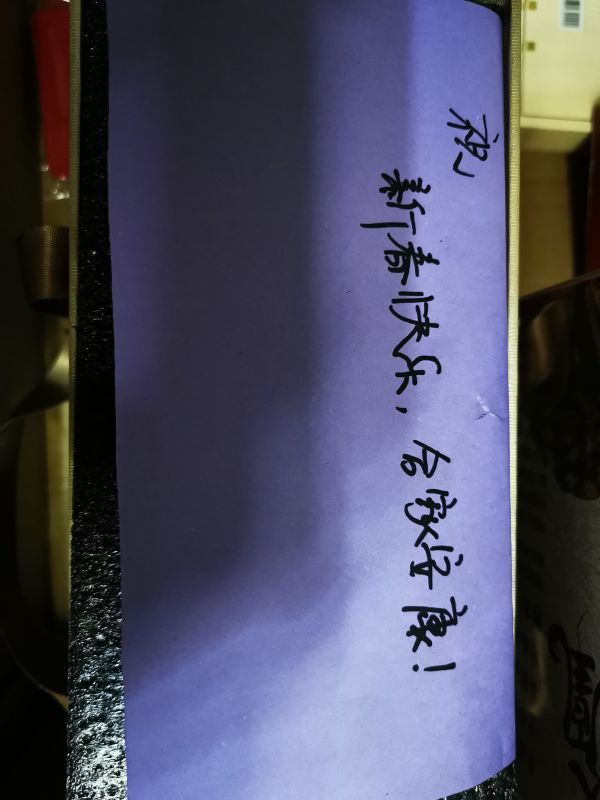 祝
新春快乐，合家安康！